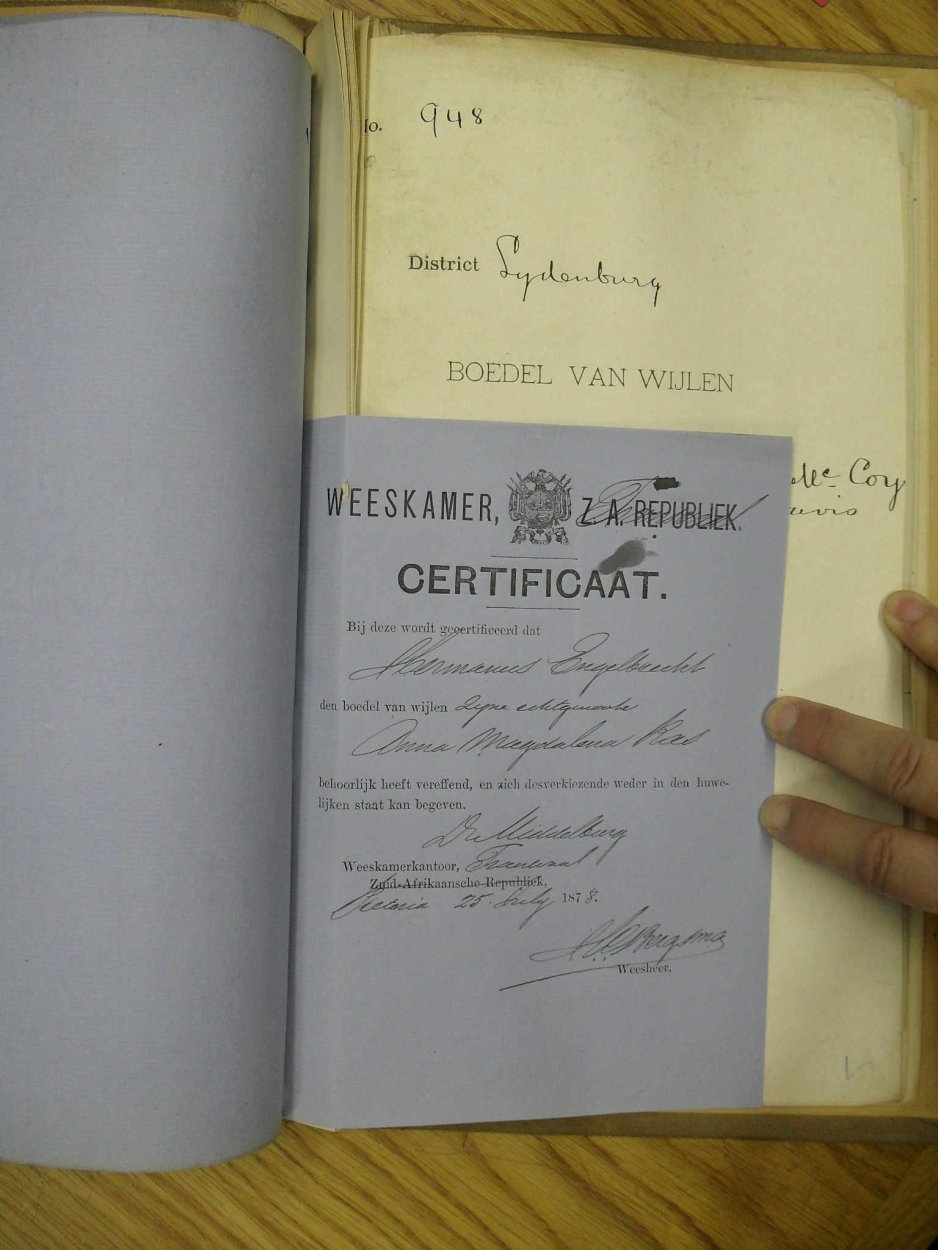 No. 948
District Lydenburg
BOEDEL VAN WIJLEN
Mc Coy
WEESKAMER, Z. A. REPUBLIEK.
CERTIFICAAT.
Bij deze wordt gecertificeerd dat
Hermanus Engelbrecht
den boedel van wijlen Zijne echtgenoote
Anna Magdalena Ras
behoorlijk heeft vereffend, en zich desverkiezende weder in den huwe-
lijken staat kan begeven.
Middelburg
Weeskamerkantoor, Transvaal
Zuid-Afrikaansche Republiek,
Pretoria 25 July 1878.
Bergsma
Weesheer.